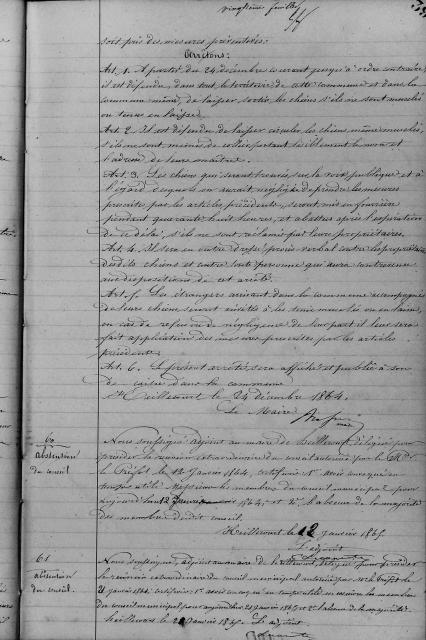 vingtième feuillet
soit pris des mesures préventives.
Arrêtons:
Art. 1. A partir du 24 décembre courant jusqu'à ordre contraire,
il est défendu, dans tout le territoire de cette commune et dans la
commune même, de laisser sortir les chiens s'ils ne sont muselés
ou tenus en laisse.
Art. 2. Il est défendu de laisser circuler les chiens même muselés,
s'ils ne sont munis de collier portant lisiblement le nom et
l'adresse de leurs maîtres.
Art. 3. Les chiens qui seront trouvés sur la voie publique et à
l'égard desquels on aurait négligé de prendre les mesures
prescrites par les articles précédents, seront mis en fourrière
pendant quarante huit heures, et abattus après l'expiration
de ce délai, s'ils ne sont réclamés par leurs propriétaires.
Art. 4. Il sera en outre dressé procès verbal contre les propriétaires
desdits chiens et contre toute personne qui aura contrevenu
aux dispositions de cet arrêté.
Art. 5. Les étrangers arrivant dans la commune accompagnés
de leurs chiens seront invités à les tenir muselés ou en laisse,
en cas de refus ou de négligence de leur part il leur sera
fait application des mesures prescrites par les articles
précédents.
Art. 6. Le présent arrêté sera affiché et publié à son
de caisse dans la commune
Heillecourt le 24 décembre 1864.
Le Maire
60
absention
du conseil
Nous soussigné adjoint au maire de Heillecourt délégué pour
présider la réunion extraordinaire du conseil autorisée par le
le Préfet le 12 Janvier 1864, certifions 1° avoir convoqué en
temps utile Messieurs les membres du conseil municipal pour
aujourd'hui 12 Janvier 1864 et 2° l'absence de la majorité
des membres dudit conseil.
Heillecourt le 12 janvier 1865.
L'adjoint
61
absention
du conseil.
Nous soussigné, adjoint au maire de Heillecourt, délégué pour présider
la réunion extraordinaire du conseil municipal autorisée par Mr le Préfet le
certifions 1° avoir convoqué en temps utile les membres
du conseil municipal pour aujourd'hui 21 janvier 1865 et 2° l'absence de la majorité
Heillecourt le 21 janvier 1865. L'adjoint